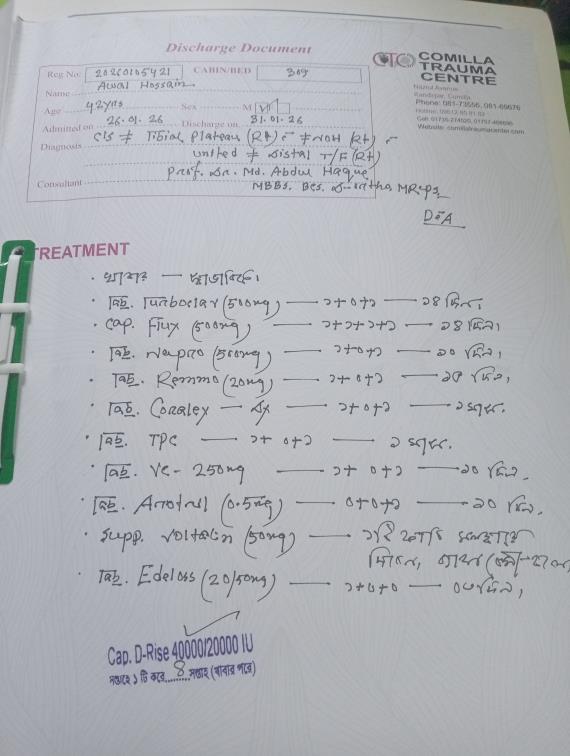 Discharge Document
COMILLA
TRAUMA
CENTRE
Nazrul Avenue
Kandirpar, Comilla
Phone: 081-73556, 081-69676
Website: comillatraumacenter.com
Reg No: 20260105421 CABIN/BED 309
Name Awal Hossain
Age 42yrs Sex M
Admitted on 26.01.26 Discharge on 31.01.26
Diagnosis cls # Tibial plateau (Rt) c̄ # NOH (Rt) c̄
united # distal T/F (Rt)
Consultant Prof. Dr. Md. Abdul Haque
MBBS. BCS. D-ortho
TREATMENT
খাবার — স্বাভাবিক।
Tab. Turboclav (500mg) — ১+০+১ — ১৪ দিন।
Cap. Flux (500mg) — ১+১+১+১ — ১৪ দিন।
Tab. (500mg) — ১+০+১ — ১০ দিন।
Tab. (20mg) — ১+০+১ — দিন।
Tab. Coralex — Dx — ১+০+১ — ১মাস.
Tab. TPC — ১+০+১ — ১ মাস.
Tab. Vc - 250mg — ১+০+১ — ২০ দিন.
Tab. (0.5mg) — ০+০+১ — ১০ দিন.
Supp. Voltalin (50mg) —
Tab. Edeloss (20/50mg) — ১+০+০ — দিন।
Cap. D-Rise 40000/20000 IU
সপ্তাহে ১ টি করে.....8.....সপ্তাহ (খাবার পরে)